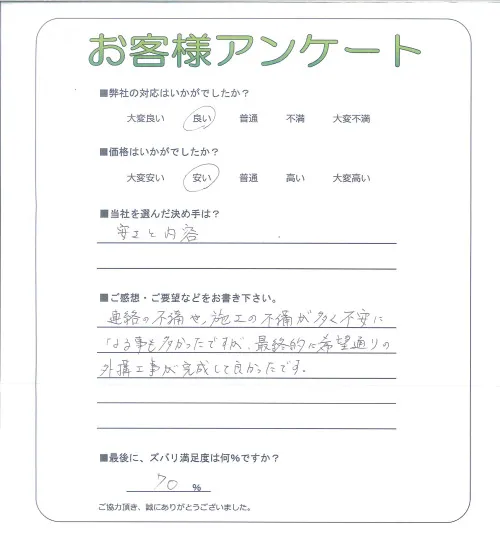 お客様アンケート
■弊社の対応はいかがでしたか？
大変良い 良い 普通 不満 大変不満
■価格はいかがでしたか？
大変安い 安い 普通 高い 大変高い
■当社を選んだ決め手は？
安さと内容
■ご感想・ご要望などをお書き下さい。
連絡の不備や、施工の不備が多く不安に
なる事も多かったですが、最終的に希望通りの
外構工事が完成して良かったです。
■最後に、ズバリ満足度は何％ですか？
70 %
ご協力頂き、誠にありがとうございました。